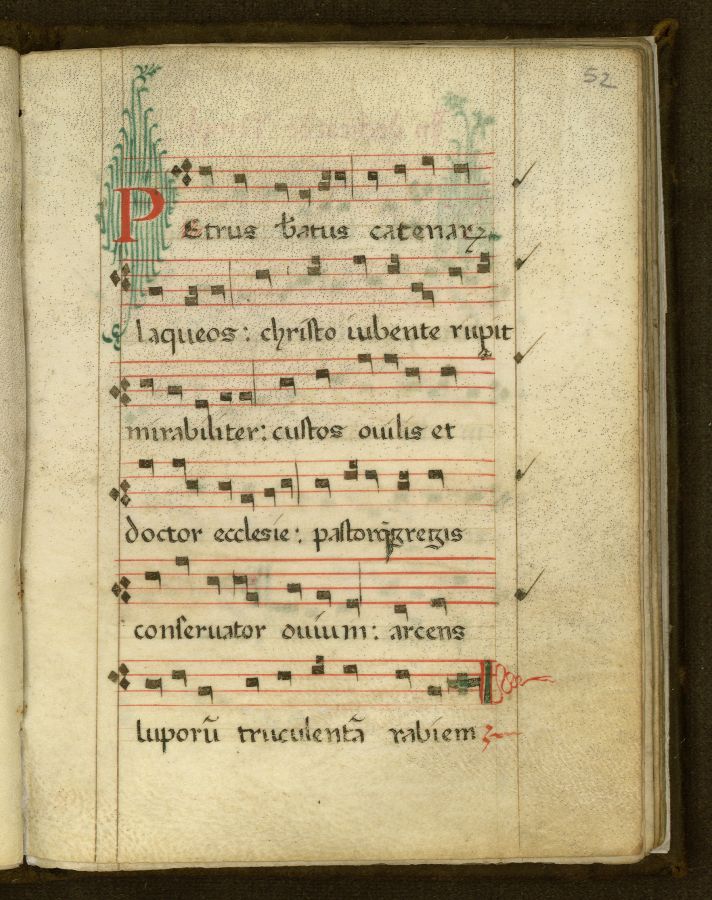 52
PEtrus b̄atus catenaꝝ
laqueos: christo iubente rupit
mirabiliter: custos ouilis et
doctor ecclesie: pastorq̄ gregis
conseruator ouium: arcens
luporū truculentā rabiem